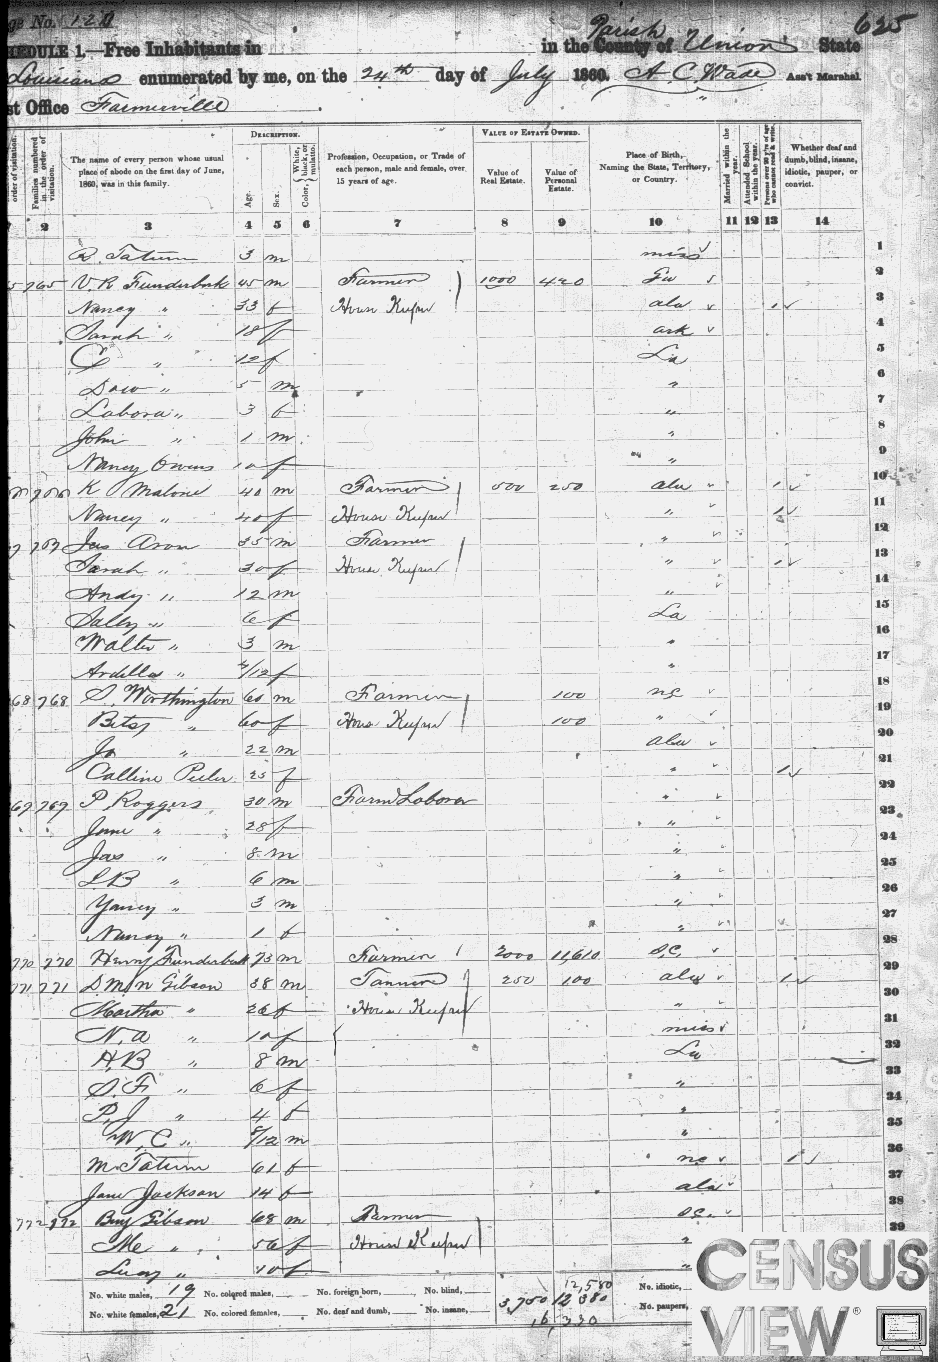 No. 120
625
SCHEDULE 1.—Free Inhabitants in in the County of Parish Union State
Louisiana enumerated by me, on the 24th day of July 1860. A C. Wade Ass't Marshal
Post Office Farmerville
DESCRIPTION. VALUE OF ESTATE OWNED.
order of visitation. Families numbered in the order of visitation. The name of every person whose usual place of abode on the first day of June, 1860, was in this family. Age. Sex. Color, White, black, or mulatto. Profession, Occupation, or Trade of each person, male and female, over 15 years of age. Value of Real Estate. Value of Personal Estate. Place of Birth, Naming the State, Territory, or Country. Married within the year. Attended School within the year. Persons over 20 y'rs of age who cannot read & write. Whether deaf and dumb, blind, insane, idiotic, pauper, or convict.
2 3 4 5 6 7 8 9 10 11 12 13 14
Tatum 3 m miss 1
765 V. R Funderburk 45 m Farmer 1000 420 2
Nancy " 33 f House Keeper ala 1 3
Sarah " 18 f ark 4
C " 12 f La 5
Dow " 5 m " 6
Labora " 3 f " 7
John " 1 m " 8
Nancy Owens 10 f " 9
766 K Malone 40 m Farmer 500 250 ala 1 10
Nancy " 40 f House Keeper " 1 11
767 Jas Aron 35 m Farmer " 12
Sarah " 30 f House Keeper " 1 13
Andy " 12 m " 14
Sally " 6 f La 15
Walter " 3 m " 16
Ardilla " /12 f " 17
768 768 S. Worthington 60 m Farmer 100 nc 18
Betsy " 60 f House Keeper 100 " 19
Jo " 22 m ala 20
Calline Peeler 25 f " 1 21
769 769 P. Roggers 30 m Farm Laborer " 22
Jane " 28 f " 23
Jas " 8 m " 24
L B " 6 m " 25
Yancy " 3 m " 26
Nancy " 1 f " 27
770 770 Henry Funderburk 73 m Farmer 2000 11,610 S.C. 28
771 771 D M N Gibson 38 m Tanner 250 100 ala 1 29
Martha " 26 f House Keeper " 30
N. A " 10 f miss 31
H. B " 8 m La 32
S. F " 6 f " 33
P. J " 4 f " 34
W. C " 8/12 m " 35
M Tatum 61 f nc 1 36
Jane Jackson 14 f ala 37
772 772 Benj Gibson 68 m Farmer S.C. 38
" 56 f House Keeper " 39
Lucy " 40 f "
No. white males, 19 No. colored males, No. foreign born, No. blind, 12,580 No. idiotic,
No. white females, 21 No. colored females, No. deaf and dumb, No. insane, 3,750 12 380 No. paupers,
16,330
CENSUS
VIEW®